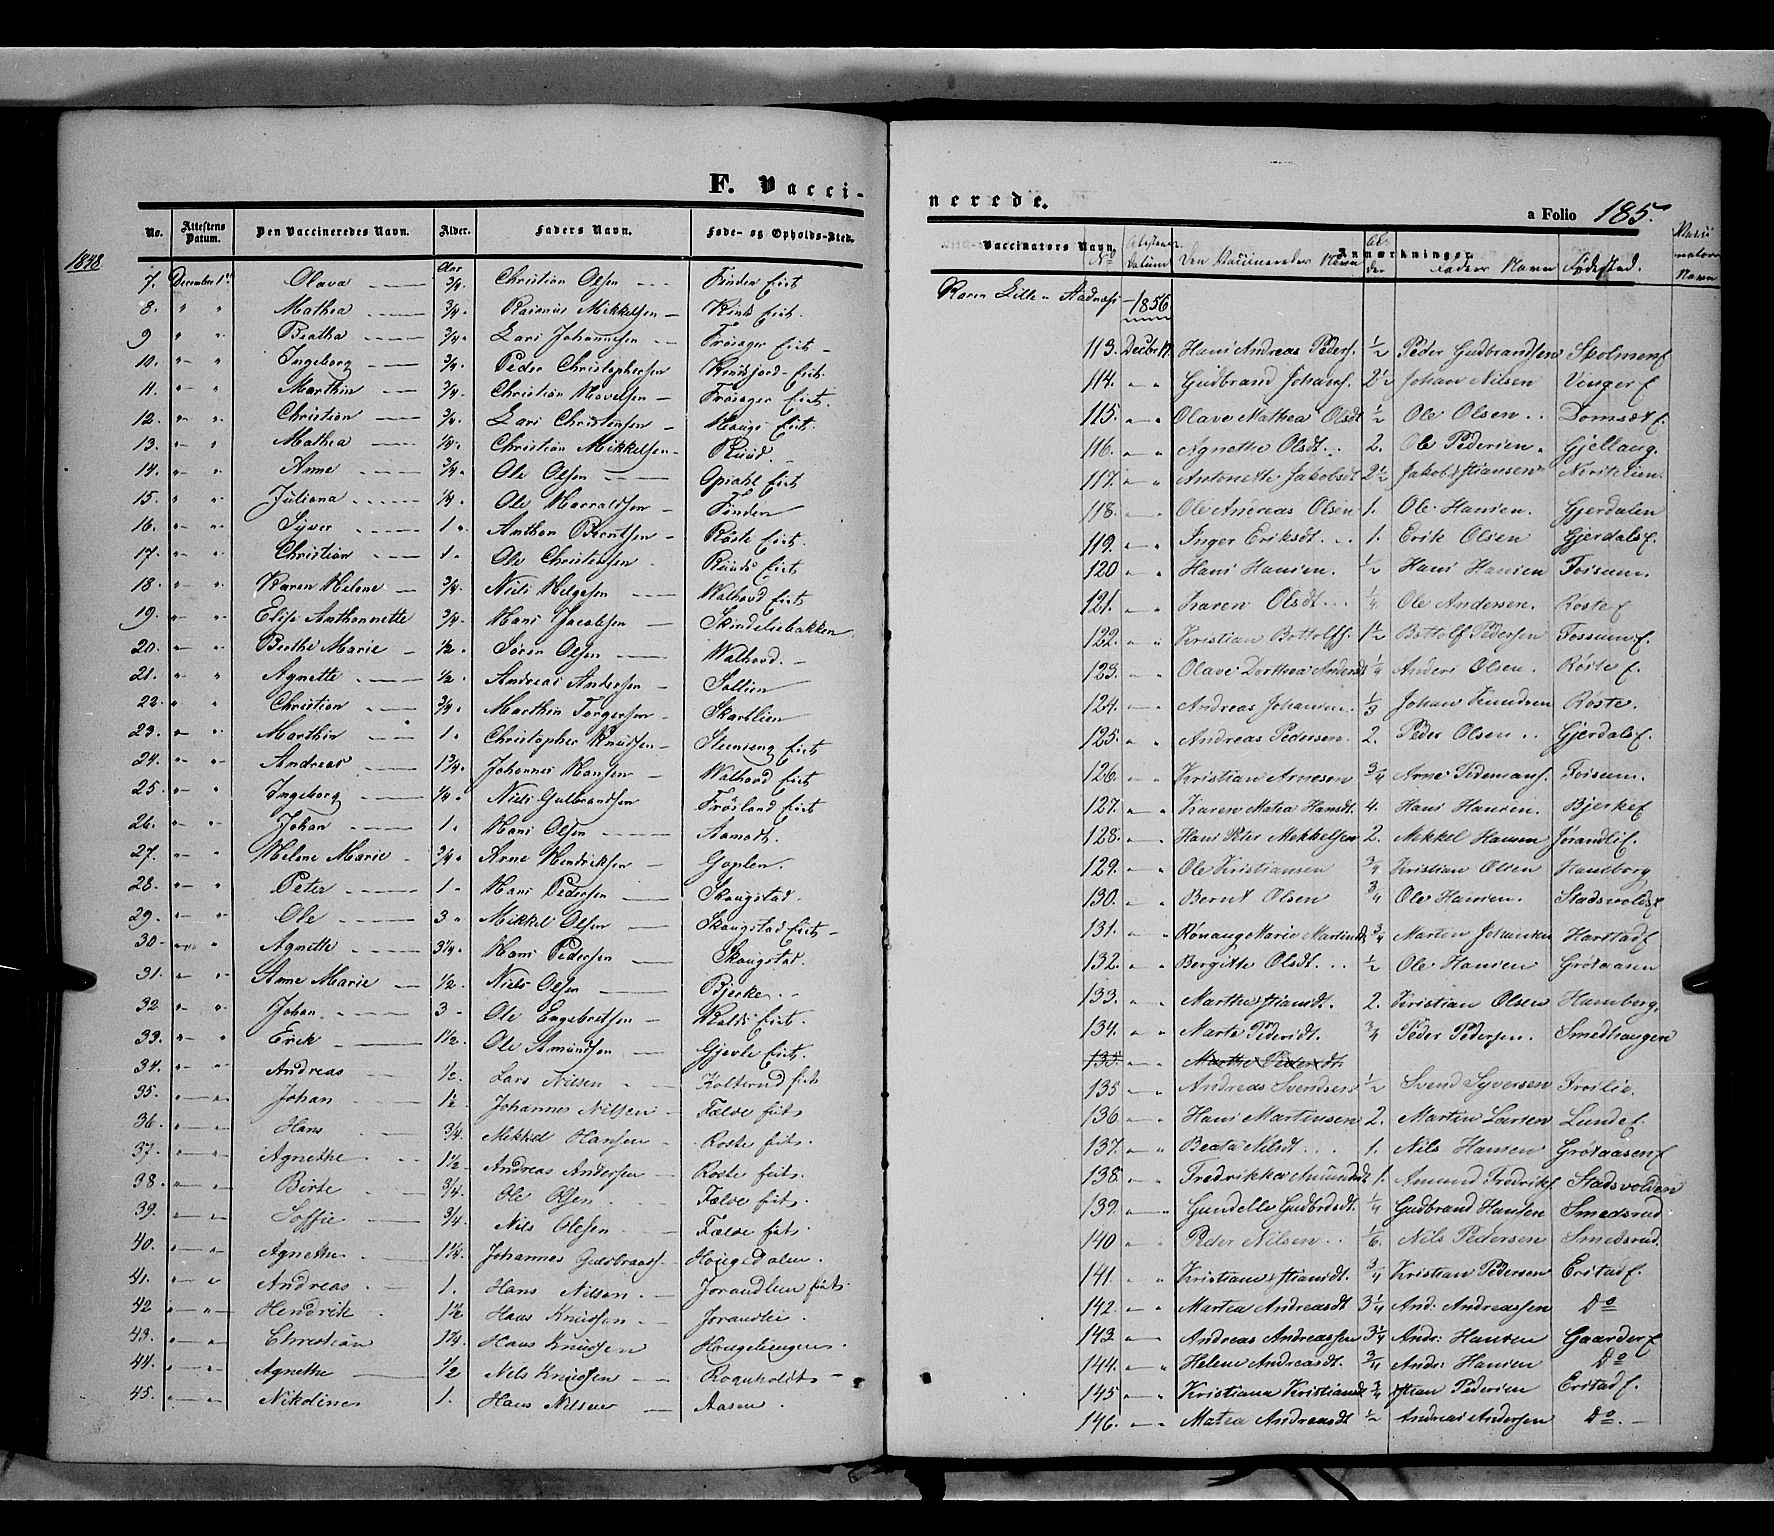 F. Vacci-
No. Attestens Datum. Den Vaccineredes Navn. Alder. Faders Navn. Føde- og Opholds-Sted.
1848
7. December 1 Olava Aar 3/4 Christian Olsen Finden Eiet
8. " " Mathea 3/4 Rasmus Mikkelsen Eiet.
9 " " Beatha 3/4 Lars Johannesen Frøisager Eiet
10. " " Ingeborg 3/4 Peder Christophersen Eiet.
11. " " Marthin 3/4 Christian Frøisager Eiet.
12. " " Christian 3/4 Lars Christensen Eiet.
13. " " Mathea 1/4 Christian Mikkelsen Ruud
14. " " Anne 3/4 Ole Olsen Opsahl Eiet
15. " " Juliana 1/4 Ole Harraldsen Finden
16. " " Syver 1 Anthon Berntsen Røste Eiet.
17. " " Christian 1. Ole Christensen Ruuds Eiet
18. " " Karen Helene 3/4 Niels Helgesen Walhovd Eiet
19. " " Elise Anthonnette 3/4 Hans Jacobsen Skindeliebakken
20. " " Berthe Marie 1/2 Søren Olsen Walhovd.
21. " " Agnette 1/2 Andreas Andersen Sollien
22. " " Christian 3/4 Marthin Torgersen Skartlien
23. " " Marthin 1. Christopher Knudsen Steenseng Eiet
24. " " Andreas 1 3/4 Johannes Hansen Walhovd Eiet
25. " " Ingeborg 1/4 Niels Gulbrandsen Frøsland Eiet
26. " " Johan 1. Hans Olsen Aamodt.
27. " " Helene Marie 3/4 Arne Hendriksen Goplen.
28. " " Peter 1 Hans Pedersen Skougstad.
29. " " Ole 3 Mikkel Olsen Skougstad Eiet
30. " " Agnethe 3 1/4 Hans Pedersen Skougstad.
31. " " Anne Marie 1/2 Niels Olsen Bjerke.
32 " " Johan 3 Ole Engebretsen Eiet.
33. " " Erik 1 1/2 Ole Amundsen Gjevle Eiet.
34. " " Andreas 1/2. Lars Nilsen Kolterud Eiet
35. " " Johan 1 1/2 Johannes Nilsen Fælde Eiet
36. " " Hans 3/4. Mikkel Hansen Røste Eiet.
37. " " Agnethe 1 1/2 Andreas Andersen Røste Eiet.
38. " " Birte 3/4. Ole Olsen Fælde Eiet.
39. " " Soffie 3/4. Nils Olesen Fælde Eiet.
40. " " Agnethe 1 1/4. Johannes Gudbrands. Hougsdalen
41. " " Andreas 1. Hans Nilsen Jorandlien Eiet
42 " " Hendrik 1 1/2 Hans Knudsen Jorandlie.
43. " " Christian 1 1/4. Hans Knudsen
44. " " Agnethe 1/2 Nils Knudsen
45. " " Nikoline 1. Hans Nilsen Aasen.
nerede.
a Folio 185.
Vaccinators Navn. Anmærkninger.
No Attestens Datum Den Vaccineredes Navn Alder Faders Navn Fødestad. Vaccinators Navn
Karen Lille Aadnæs 1856
113. Decbr 17. Hans Andreas Peders. 1/2 Peder Gudbrandsen Skolmen E
114. " " Gudbrand Johans. 2 1/2 Johan Nilsen Vinger E.
115. " " Olave Mathea Olsdt 1/2 Ole Olsen Domsæt E.
116. " " Agnethe Olsdt. 2. Ole Pedersen. Gjellaug.
117. " " Antonette Jakobsdt 2 1/2 Jakob Xtiansen Nerstelien
118. " " Ole Andreas Olsen 1. Ole Hansen. Gjerdalen
119. " " Inger Eriksdt. 1. Erik Olsen Gjerdals E.
120 " " Hans Hansen. 1/2 Hans Hansen Fossum.
121. " " Karen Olsdt. 1/4 Ole Andersen. Røste E
122. " " Kristian Bottolfs. 1 1/2 Bottolf Pedersen Fossum E.
123. " " Olave Dorthea Andersdt 1/4 Anders Olsen. Røste E.
124. " " Andreas Johansen. 1/3 Johan Knudsen Røste.
125. " " Andreas Pedersen. 2. Peder Olsen Gjerdals E.
126. " " Kristian Arnesen 3/4 Arne Fossum.
127. " " Karen Matea Hansdt. 4. Hans Hansen. Bjerke E
128. " " Hans Peter Mekkelsen 2. Mekkel Hansen Jørandli E.
129. " " Ole Kristiansen 3/4 Kristian Olsen Hamborg
130. " " Bernt Olsen 3/4 Ole Hansen. Stadsvolds E
131. " " Rønaug Marie Martinsdt 3/4 Marten Johansen Harstad E
132. " " Bergitte Olsdt. 1/2 Ole Hansen Grøtaasen
133. " " Marthe Xtiansdt. 2. Kristian Olsen Hamborg.
134. " " Marte Pedersdt. 3/4 Peder Pedersen. Smedhaugen
135. " " Marthe Pedersdt.
135 " " Andreas Svendsen 1/2 Svend Syversen Froslie.
136 " " Hans Martinsen 2. Martin Larsen Lunde E.
137. " " Beata Nilsdt. 1. Nils Hansen Grøtaasen E
138. " " Fredrikka Amundsdt 1. Amund Fredriks. Stadsvolden
139. " " Gundelle Gudbrdsdt. 1/4 Gudbrand Hansen Smedsrud
140 " " Peder Nilsen 1/6. Nils Pedersen Smedsrud.
141. " " Kristiane Xtiansdt. 3/4 Kristian Pedersen Eristad E.
142. " " Martea Andreasdt 3 1/4 And: Andreassen Do
143. " " Andreas Andreassen 3 1/4 Andr: Hansen Gaarder E
144. " " Helene Andreasdt. 3/4 Andr: Hansen Do
145 " " Kristiana Kristiansdt 3/4 Xtian Pedersen Eristad E.
146. " " Matea Andreasdt 1/2 Andreas Andersen Do